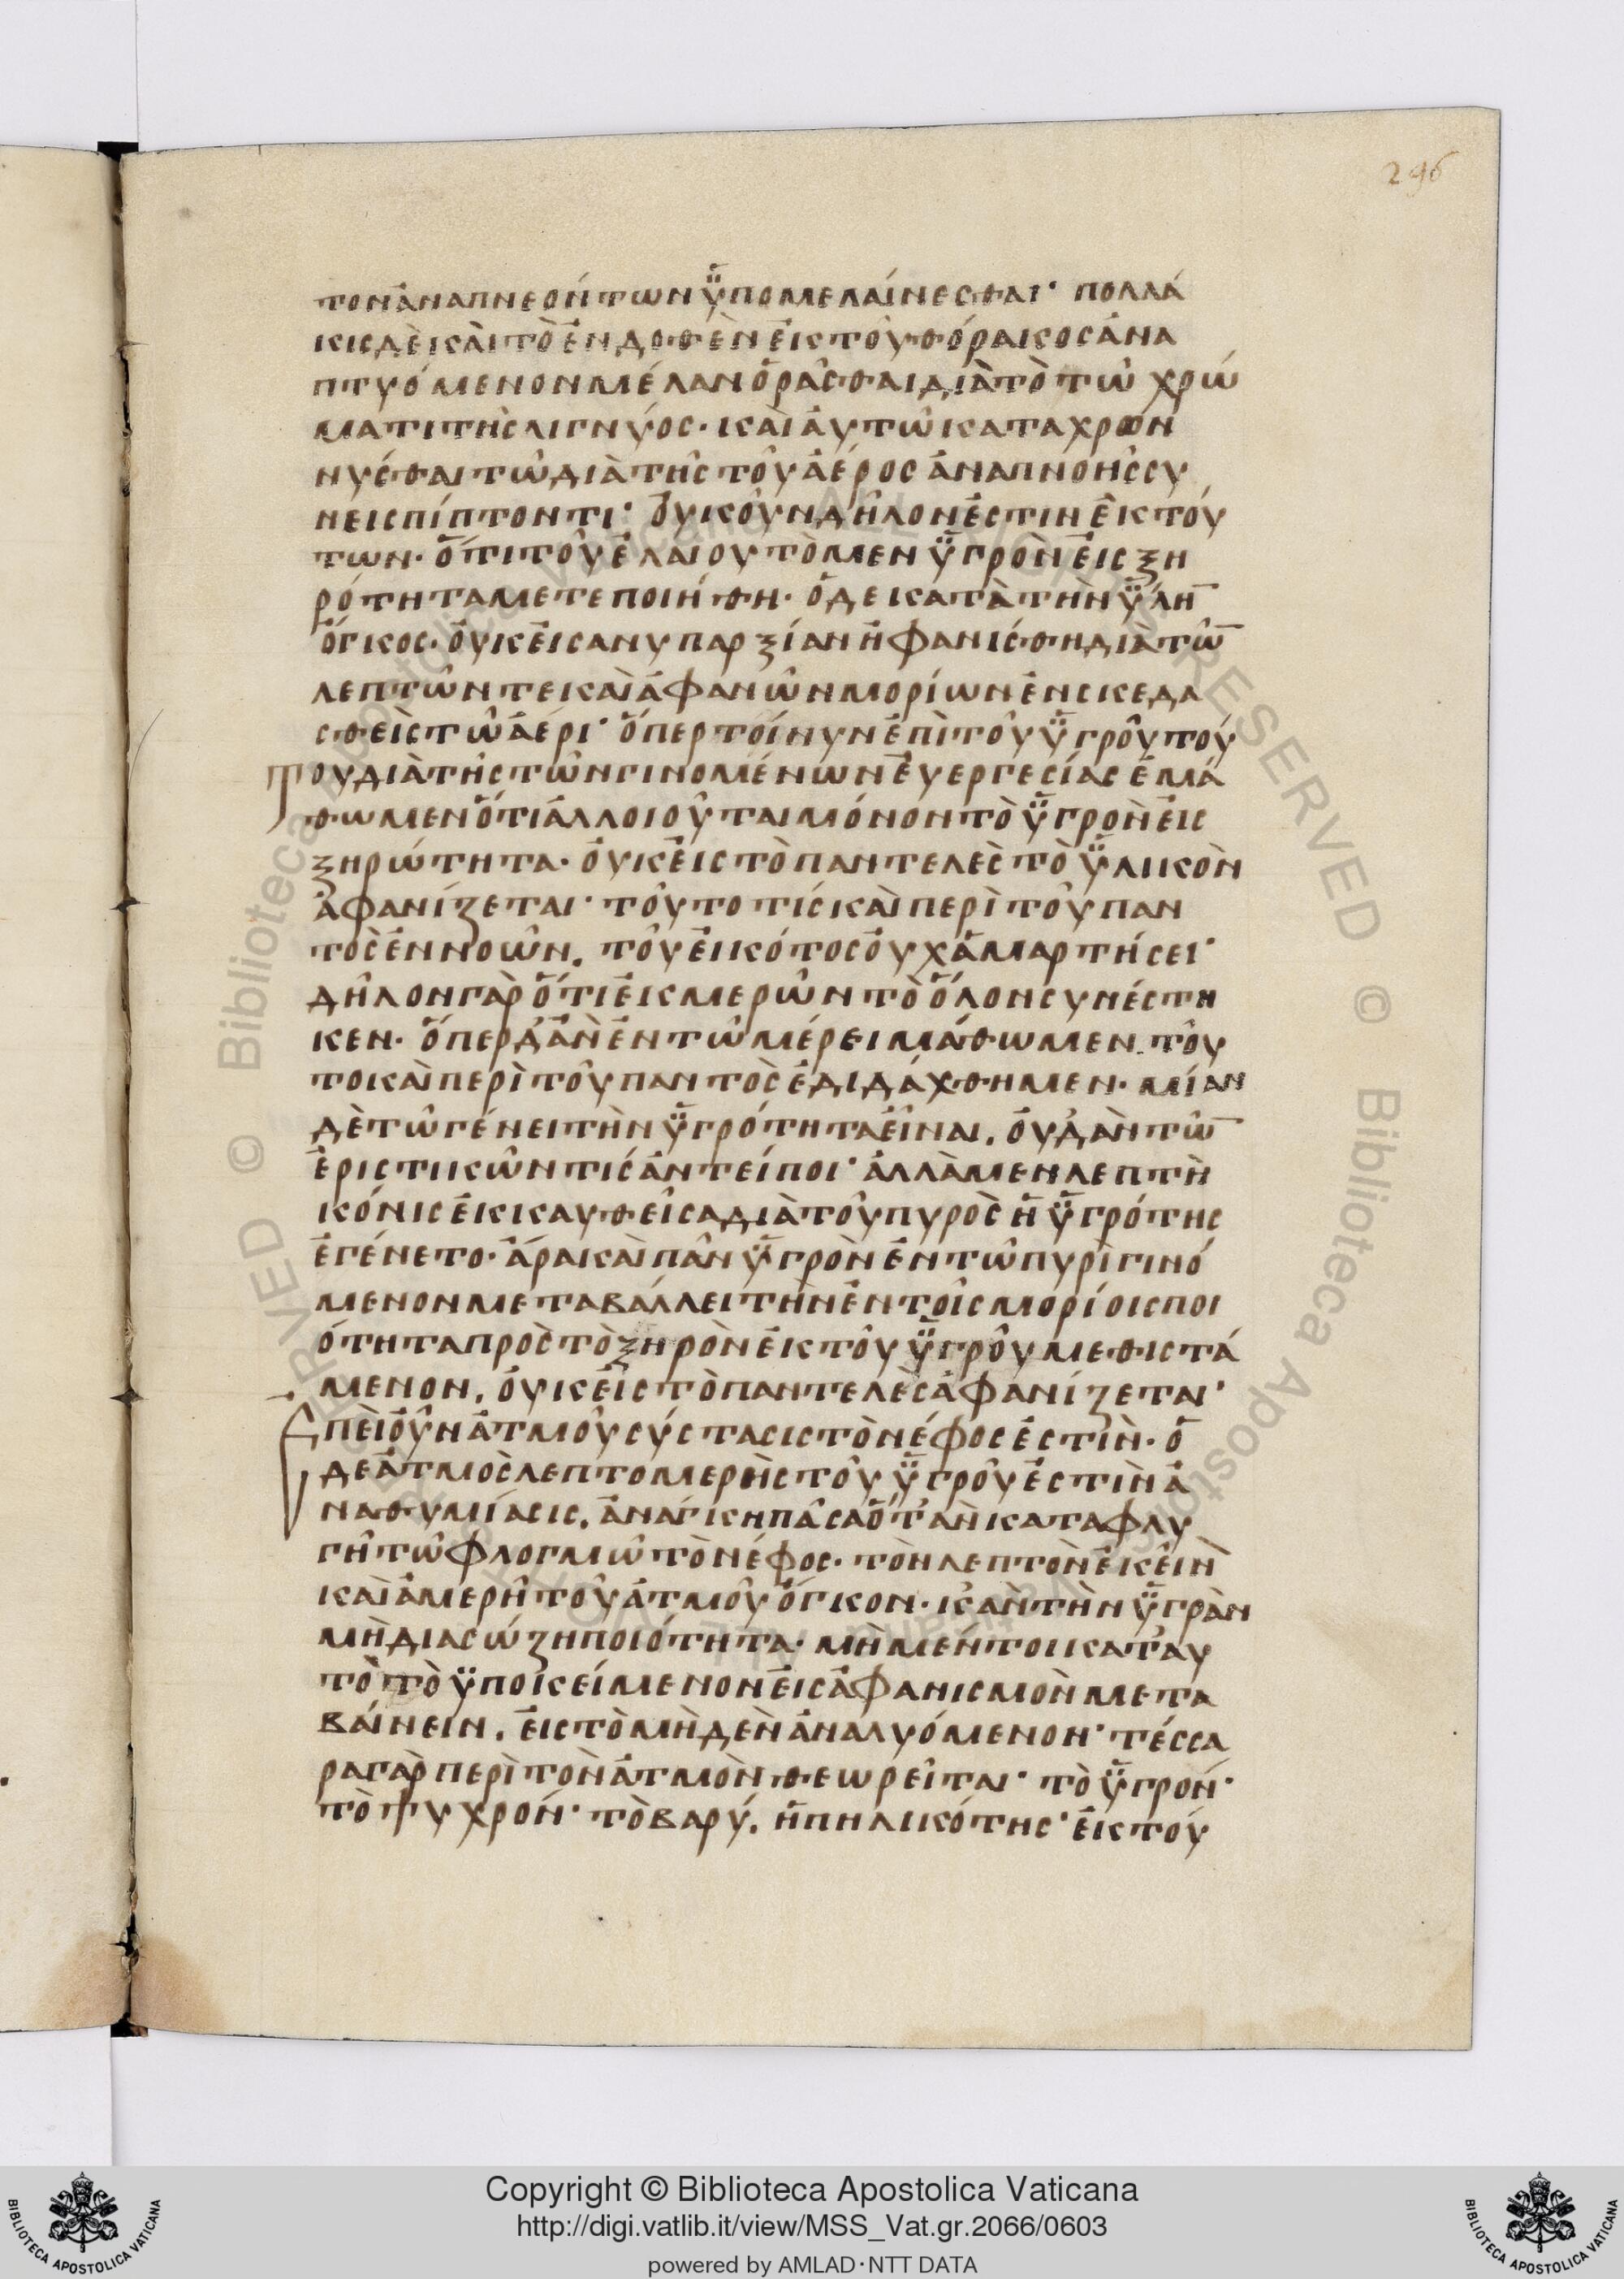 296
τονἀναπνεόντωνὑπομελαίνεσθαι· πολλά
κισδὲκαὶτὸἔνδοθὲνἐκτοῦθόρακοσἀνα
πτυόμενονμέλανὁρᾶσθαιδιὰτὸτῶ χρώ
ματιτῆσλιγνύοσ· καὶἀυτῶκαταχρών
νυσθαιτῶδιὰτῆστοῦἀέροσἀναπνοῆσσυ
νεισπίπτοντι· ὀυκοῦνδῆλονἐστινἐκτού
των· ὅτιτοῦἐλαιουτὸμενὑγρὸνἐισξη
ρότηταμετεποιήθη· ὁδεκατὰτὴνὕλη̅
ὄγκοσ· ὀυκἐισανυπαρξίανἠφανίσθηδιὰτῶ̅
λεπτῶντεκαὶἀφανῶνμορίωνἐνσκεδα
σθεὶστῶἀέρι· ὅπερτοίνυνἐπὶτοῦὑγροῦτού
τουδιὰτῆστῶνγινομένωνἐυεργεσίασἐμά
θωμενὅτιἀλλοιοῦταιμόνοντὸὑγρὸνἐισ
ξηρώτητα· ὀυκἐιστὸπαντελὲστὸὑλικὸν
ἀφανίζεται· τοῦτο τίσκαὶπερὶτοῦπαν
τὸσἐννοῶν. τοῦἐικότοσὀυχἁμαρτήσει·
δῆλονγὰρὅτιἐκμερῶντὸὅλονσυνέστη
κεν· ὅπερδ̓ἂνἐντῶμέρειμάθωμεν τοῦ
τοκαὶπερὶτοῦπαντὸσἐδιδάχθημεν· μίαν
δὲτῶγένειτὴνὑγρότηταἐῖναι. ὀυδ̓ἂντῶ̅
ἐριστικῶντίσἀντείποι· ἀλλὰμενλεπτὴ
κόνισἐκκαυθεῖσαδιὰτοῦπυρὸσἡὑγρότησ
ἐγένετο· ἄρακαὶπᾶνὑγρὸνἐντῶπυρὶγινό
μενονμεταβάλλειτὴνἐντοῖσμορίοισποι
ότηταπρὸστὸξηρὸνἐκτοῦὑγροῦμεθιστά
μενον. ὀυκἐὶστὸπαντελὲσἀφανίζεται·
ἐπεὶὀῦνἀτμοῦσύστασιστὸνέφοσἐστὶν· ὁ
δεἀτμὸσλεπτομερὴστοῦὑγροῦἐστὶνἀ
ναθυμίασισ. ἀναγκηπᾶσαὅτ̓ἀνκαταφλυ
γῆτῶφλογμῶτὸνέφοσ· τὸνλεπτὸνἐκεῖν̀
καὶἀμερῆτοῦἀτμοῦὄγκον· κἂντὴνὑγρὰν
μὴδιασώζηποιότητα· μὴμέντοικατ̓αυ
τὸ τὸ ὑποκείμενονἐισἀφανισμὸνμετα
βάινειν. ἐιστὸμὴδενἀναλυόμενον· τέσσα
ραγὰρπερὶτὸνἀτμὸνθεωρεῖται· τὸὑγρον́·
τὸψυχρον́· τὸβαρύ. ἡπηλικότησ· ἐκτού
Copyright © Biblioteca Apostolica Vaticana
http://digi.vatlib.it/view/MSS_Vat.gr.2066/0603
powered by AMLAD·NTT DATA